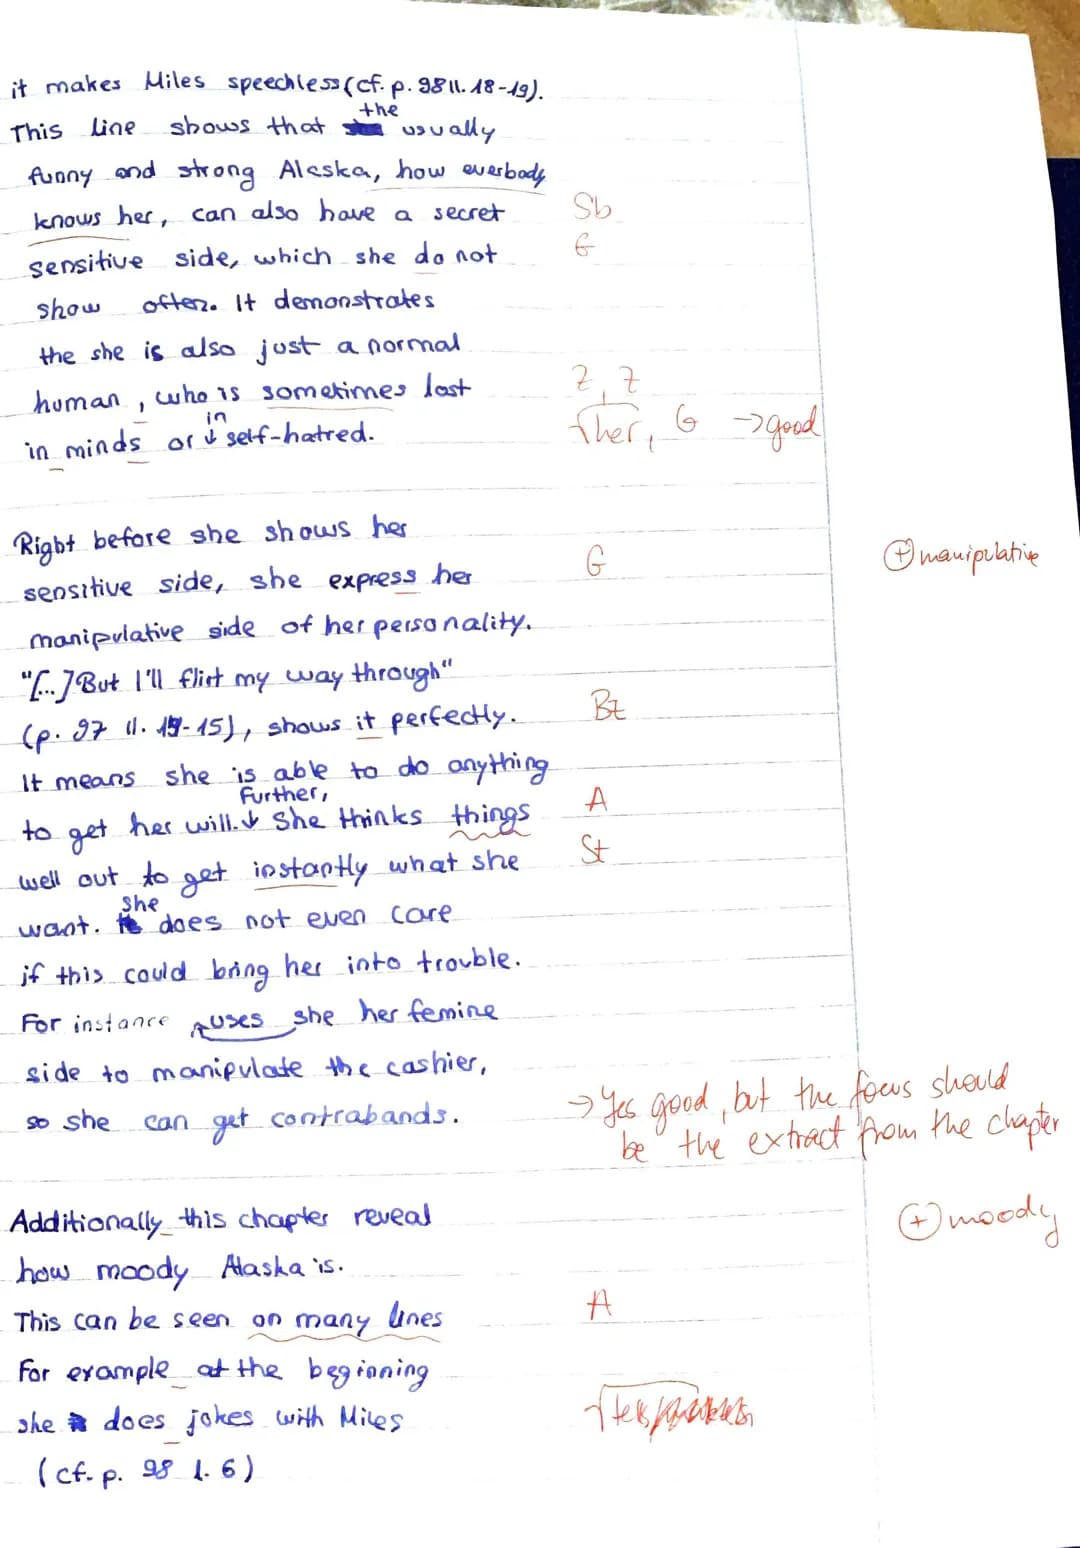 it makes Miles speechless (cf. p. 98 ll. 18-19).
the
This line shows that usually
funny and strong Alaska, how everbody
knows her, can also have a secret Sb
sensitive side, which she do not G
show often. It demonstrates
the she is also just a normal
human, who is sometimes lost Z, Z
in
in minds or self-hatred. her, G → good
Right before she shows her
sensitive side, she express her G ⊕ manipulative
manipulative side of her personality.
"[...] But I'll flirt my way through"
(p. 97 ll. 14-15), shows it perfectly. Bz
It means she is able to do anything
Further,
to get her will. ↓ She thinks things A
well out to get instantly what she St
she
want. does not even care
if this could bring her into trouble.
For instance uses she her femine
side to manipulate the cashier,
so she can get contrabands. → Yes good, but the focus should
be the extract from the chapter
Additionally this chapter reveal ⊕ moody
how moody Alaska is.
This can be seen on many lines A
For example at the beginning
she does jokes with Miles
(cf. p. 98 l. 6)